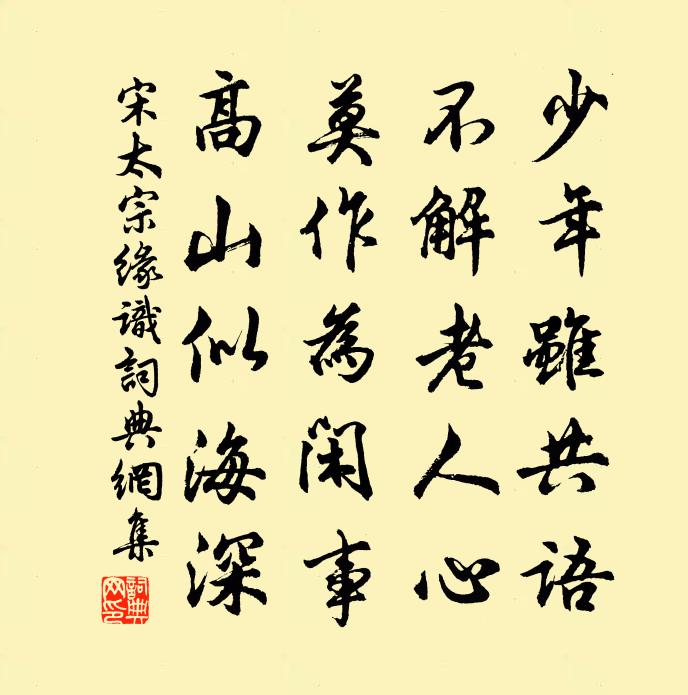 少年雖共語
不解老人心
莫作為閑事
高山似海深
宋太宗緣識詞典網集
詞典網印